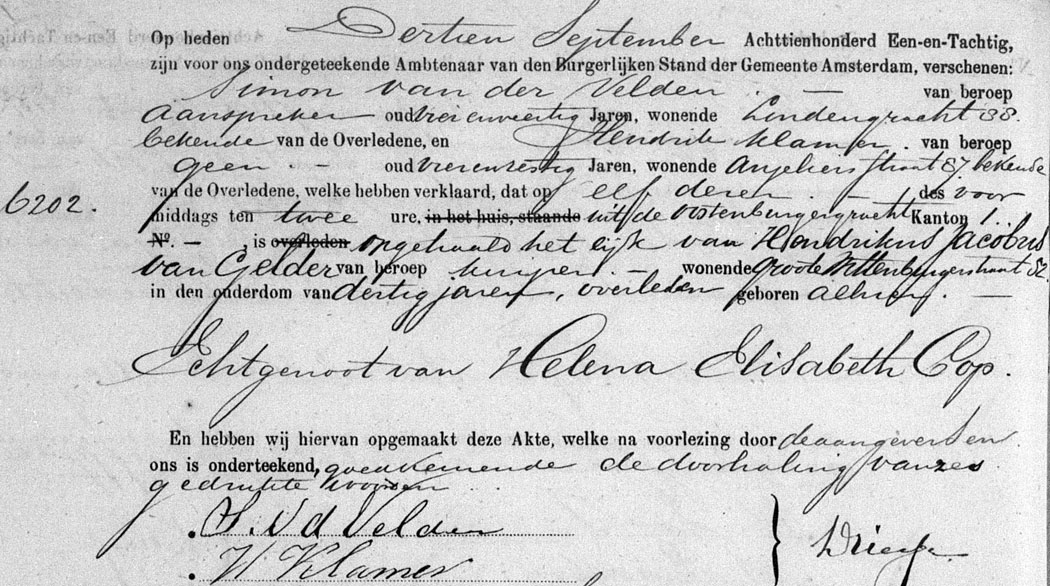 Op heden Dertien September Achttienhonderd Een-en-Tachtig,
zijn voor ons ondergeteekende Ambtenaar van den Burgerlijken Stand der Gemeente Amsterdam, verschenen:
Simon van der Velden van beroep
Aanspreker oud vierenveertig Jaren, wonende Lindengracht 38.
bekende van de Overledene, en Hendrik Klamer. van beroep
geen oud vierenzestig Jaren, wonende Anjeliersstraat 87. bekende
van de Overledene, welke hebben verklaard, dat op elf dezer des voor
6202. middags ten twee ure, in het huis, staande uit de Oostenburgergracht Kanton 1.
No. — , is overleden opgehaald het lijk van Hendrikus Jacobus
van Gelder van beroep kuiper. — wonende Groote Wittenburgerstraat 52.
in den ouderdom van dertig jaren, overleden geboren alhier. —
Echtgenoot van Helena Elisabeth Cop.
En hebben wij hiervan opgemaakt deze Akte, welke na voorlezing door de aangevers en
ons is onderteekend, goedkeurende de doorhaling van zes
gedrukte woorden
S. V d Velden
H Klamer